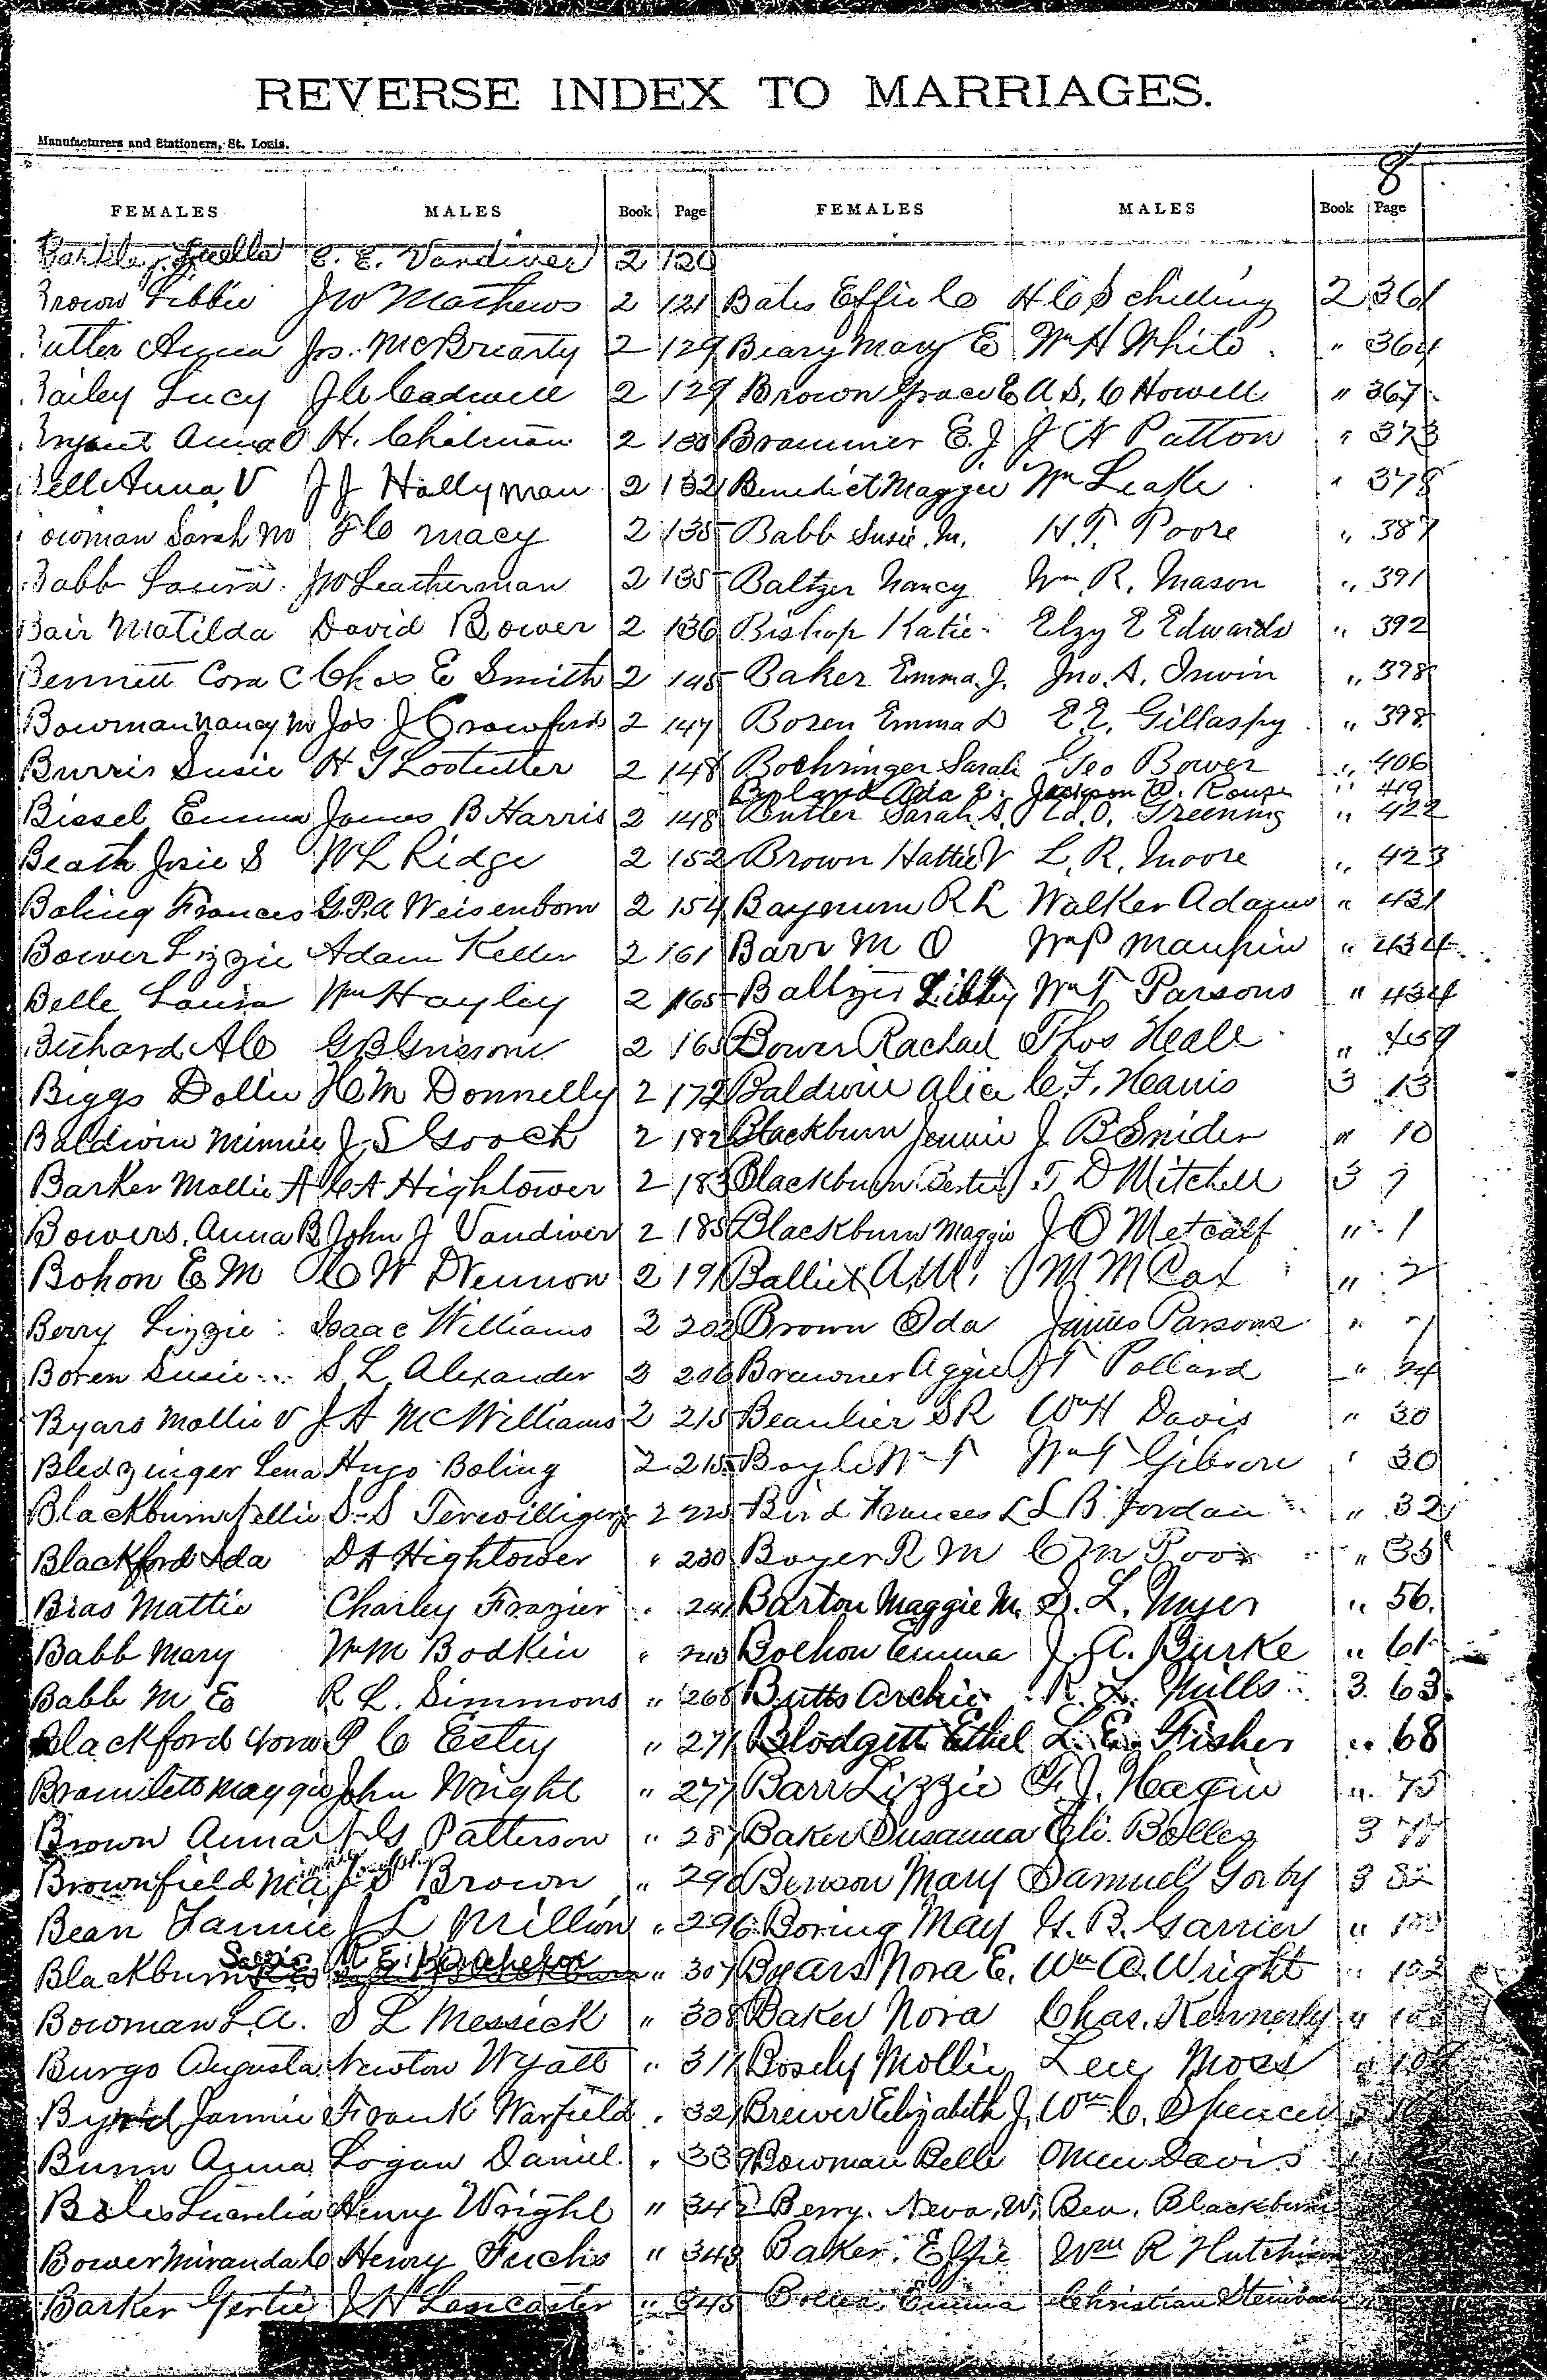 REVERSE INDEX TO MARRIAGES.
Manufacturers and Stationers, St. Louis.
8
FEMALES MALES Book Page FEMALES MALES Book Page
Luella E. E. Vandiver 2 120
Brown Libbie JW Mathews 2 121 Bates Effie C H C Schilling 2 361
Butler Anna Jos. McBriarty 2 129 Beary Mary E Wm H White " 364
Bailey Lucy J C Cadwell 2 129 Brown Grace E A. S. C Howell " 367
Bryant Anna O H. Chatman 2 130 Brammer E. J J N Patton " 373
Bell Anna V J J Hollyman 2 132 Benedict Maggie Wm Leake " 378
Bowman Sarah M F C Macy 2 135 Babb Susie M. H. T. Poore " 387
Babb Laura JW Leatherman 2 135 Baltzer Nancy Wm R. Mason " 391
Bair Matilda David Bower 2 136 Bishop Katie Elzy E Edwards " 392
Bennett Cora C Chas E Smith 2 145 Baker Emma J. Jno. A. Irwin " 398
Bowman Nancy M Jos J Crawford 2 147 Boren Emma D E E. Gillaspy " 398
Burris Susie H G Lostutter 2 148 Boehringer Sarah Geo Bower " 406
Borland Ada E. Jackson W. Rouse " 419
Bissel Emma James B Harris 2 148 Butler Sarah A. Ed. O. Greening " 422
Beath Josie S W L Ridge 2 152 Brown Hattie V L. R. Moore " 423
Boling Frances G. P. A Weisenborn 2 154 Baynum R L Walker Adams " 431
Bower Lizzie Adam Keller 2 161 Barr M O Wm P Maupin " 434
Belle Laura Wm Hayley 2 165 Baltzer Libby Wm T Parsons " 434
Bichard A C G B Grissom 2 165 Bower Rachael Thos Heall " 459
Biggs Dollie H M Donnelly 2 172 Baldwin Alice C. F. Heavis 3 13
Baldwin Minnie J. S Gooch 2 182 Blackburn Jennie J B Snider " 10
Barker Mollie A C A Hightower 2 183 Blackburn Bertie T D Mitchell 3 7
Bowers, Anna B John J Vandiver 2 185 Blackburn Maggie J O Metcalf " 1
Bohon E M C W D Vernon 2 191 Balliet A M. M M Cox " 2
Berry Lizzie Isaac Williams 2 202 Brown Oda James Parsons " 7
Boren Susie S. L Alexander 2 206 Brawner Aggie J T Pollard " 24
Byars Mollie V J A McWilliams 2 215 Beaulier S R Wm H Davis " 30
Bledzinger Lena Hugo Boling 2 215 Boyle Wm T Gibson " 30
Blackburn Nellie S. S Terwilliger 2 225 Bird Frances L L B Jordan " 32
Blackford Ada D A Hightower " 230 Boyer R M C M Poor " 35
Bias Mattie Charley Frazier " 241 Barton Maggie M. D. L. Myer " 56.
Babb Mary Wm M Bodkin " 243 Bolhon Emma J. A. Burke " 61
Babb M E R L. Simmons " 268 Butts Archie R. L. Mills 3 63
Blackford P C Estey " 271 Blodgett Ethel L. E. Fisher " 68
Bramlett Maggie John Wright " 277 Barr Lizzie F. J. Hagin " 75
Brown Anna Patterson " 287 Baker Susanna Eli Bolles 3 77
Brownfield Joseph S Brown " 290 Benson Mary Samuel Gorby 3 82
Bean Fannie J L Million " 296 Boring May G. B. Garrier "
Blackburn Sallie Bachelor " 307 Byars Nora E. Wm A. Wright " 102
Bowman L. A. S L Messick " 308 Baker Nora Chas. Kennerly "
Burgo Augusta Newton Wyatt " 311 Bosely Mollie Lee Moss " 107
Byrd Jannie Frank Warfield " 321 Brewer Elizabeth J. Wm C. Spencer
Bunn Anna Logan Daniel " 339 Bowman Belle Owen Davis
Boles Henry Wright " 342 Berry. Neva. W. Ben. Blackburn
Bower Miranda C Henry Fuchs " 343 Baker. Effie Wm R Hutchison
Barker Gertie J H Lancaster " 345 Emma Christian